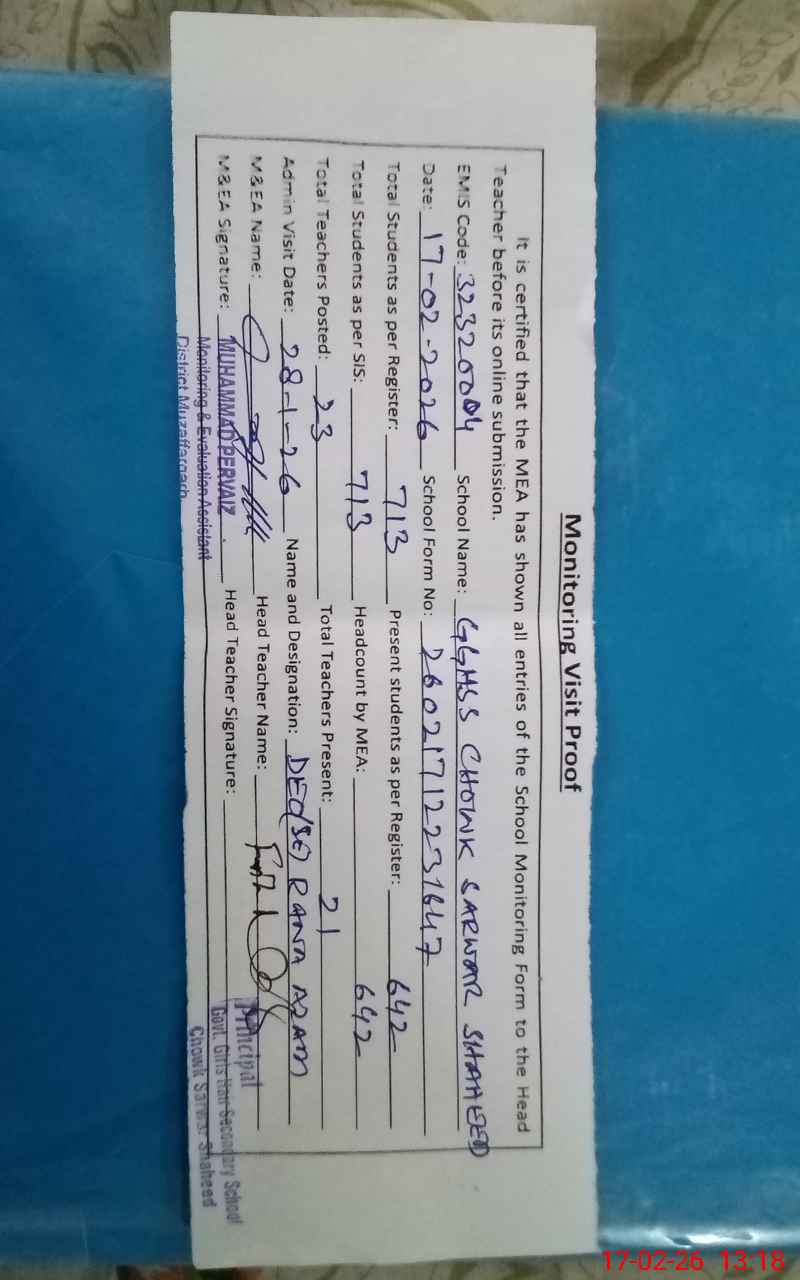 Monitoring Visit Proof
It is certified that the MEA has shown all entries of the School Monitoring Form to the Head
Teacher before its online submission.
EMIS Code: 32320004 School Name: GGHSS CHOWK SARWAR SHAHEED
Date: 17-02-2026 School Form No: 260217122231647
Total Students as per Register: 713 Present students as per Register: 642
Total Students as per SIS: 713 Headcount by MEA: 642
Total Teachers Posted: 23 Total Teachers Present: 21
Admin Visit Date: 28-1-26 Name and Designation: DEO(SE) RANA AZAM
M&EA Name: Head Teacher Name:
M&EA Signature: MUHAMMAD PERVAIZ Head Teacher Signature:
Monitoring & Evaluation Assistant
District Muzaffargarh
Principal
Govt. Girls Hair Secondary School
Chowk Sarwar Shaheed
17-02-26 13:18